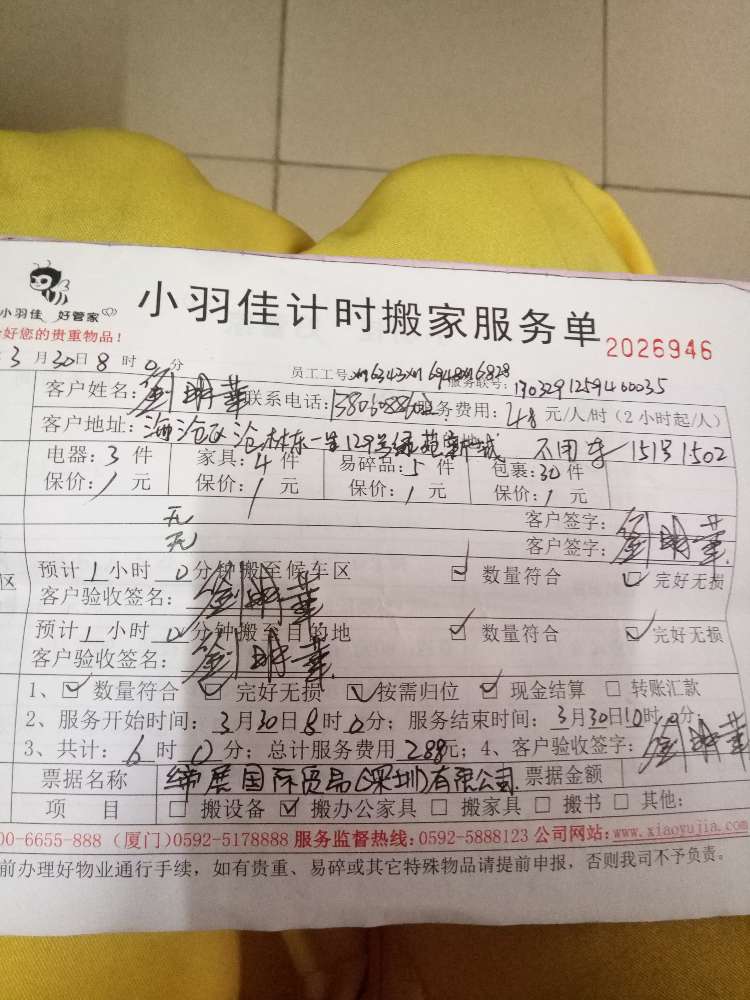 小羽佳 好管家
小羽佳计时搬家服务单 2026946
好您的贵重物品!
3月30日8时0分 员工工号: 服务联号:
客户姓名:劉明華 联系电话: 服务费用:48元/人/时(2小时起/人)
客户地址:海沧区沧林东一里129号绿苑新城 不用车 151号1502
电器:3件 家具:4件 易碎品:5件 包裹:30件
保价:/元 保价:/元 保价:/元 保价:/元
无 客户签字:劉明華
无 客户签字:
区 预计1小时0分钟搬至候车区 ☑ 数量符合 ☑ 完好无损
客户验收签名:劉明華
预计1小时0分钟搬至目的地 ☑ 数量符合 ☑ 完好无损
客户验收签名:劉明華
1、☑ 数量符合 ☑ 完好无损 ☑ 按需归位 ☑ 现金结算 □ 转账汇款
2、服务开始时间:3月30日8时0分;服务结束时间:3月30日10时0分;
3、共计:6时0分;总计服务费用288元;4、客户验收签字:劉明華
票据名称 纬展国际贸易(深圳)有限公司 票据金额
项 目 □ 搬设备 ☑ 搬办公家具 □ 搬家具 □ 搬书 □ 其他:
00-6655-888(厦门)0592-5178888 服务监督热线:0592-5888123 公司网站:www.xiaoyujia.com
前办理好物业通行手续,如有贵重、易碎或其它特殊物品请提前申报,否则我司不予负责。